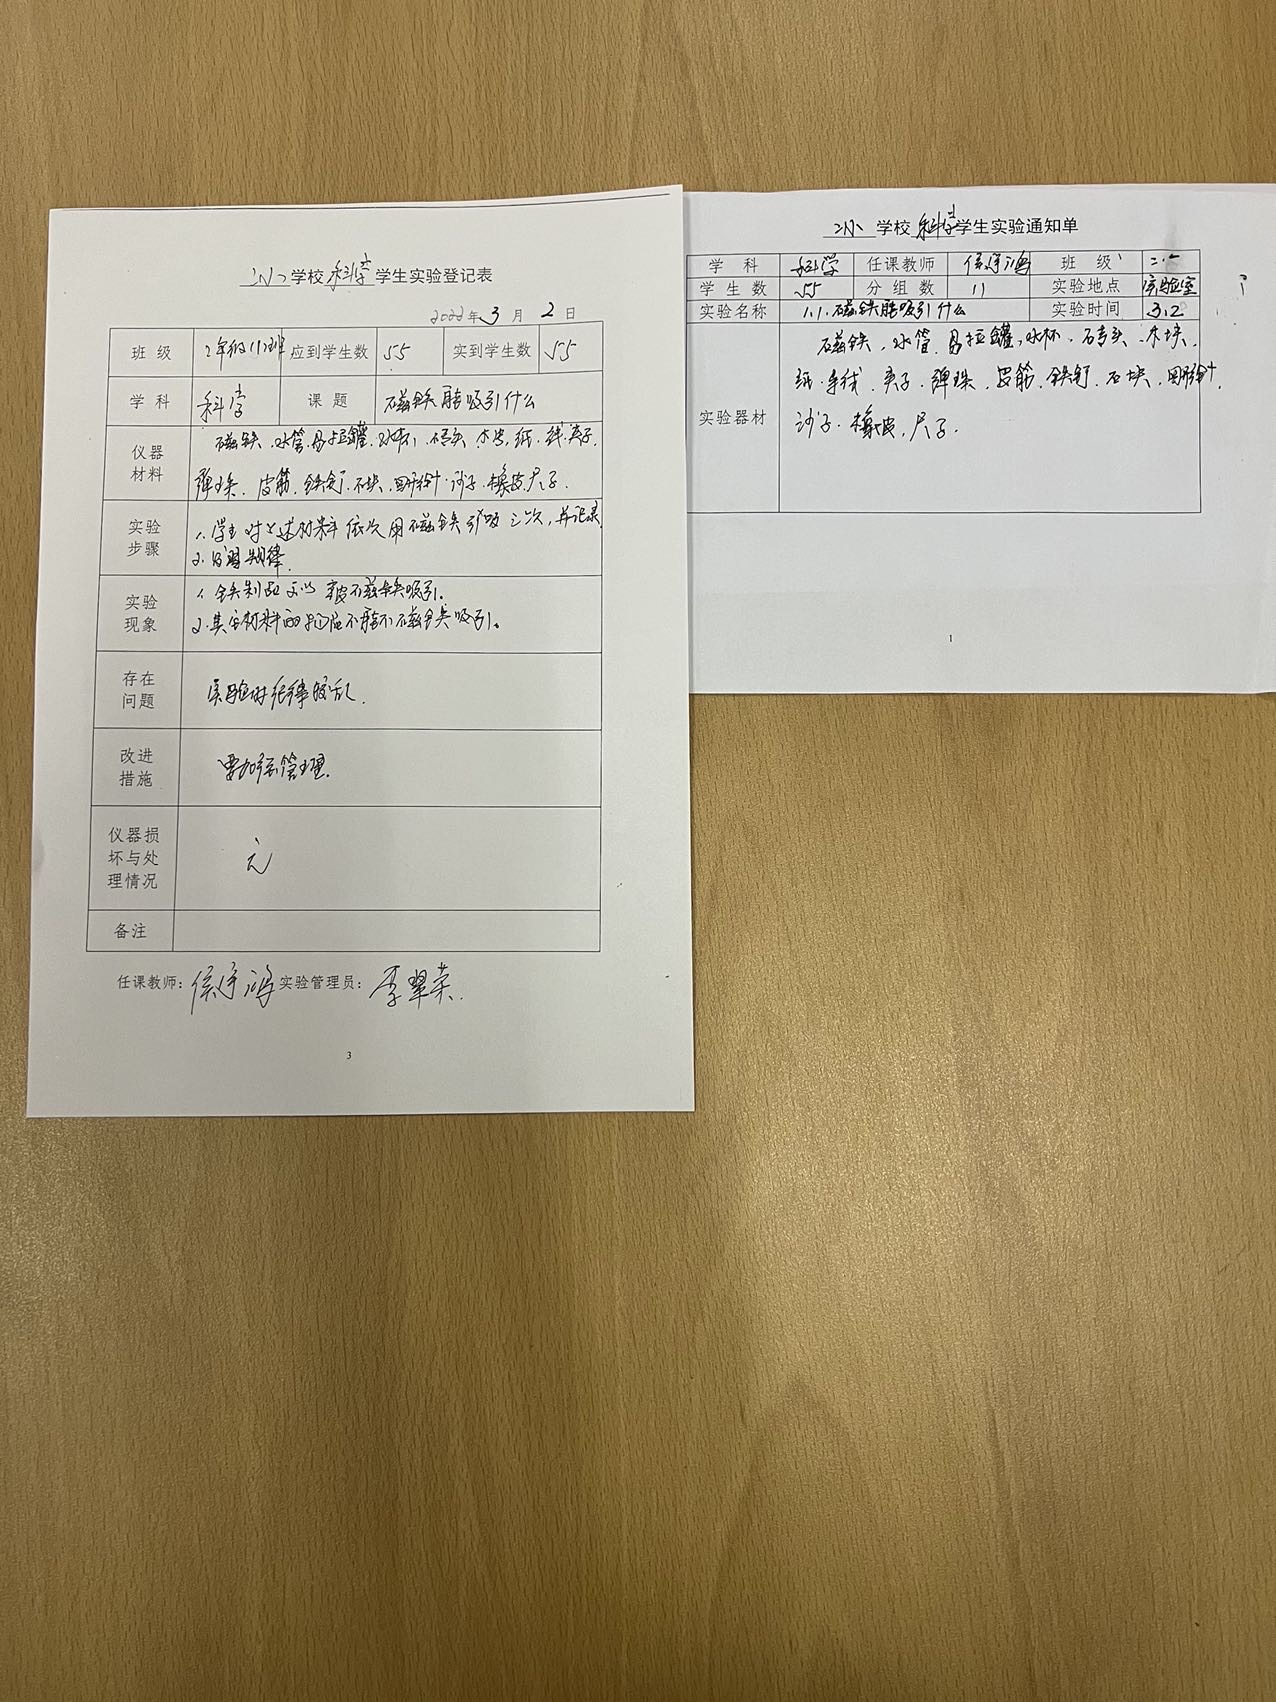 学校 科学 学生实验登记表
2022年 3 月 2 日
班 级 2年级(1)班 应到学生数 55 实到学生数 55
学 科 科学 课 题 磁铁能吸引什么
仪器材料 磁铁、水管、易拉罐、水杯、砖头、木块、纸、线、夹子、
弹珠、皮筋、铁钉、石块、回形针、沙子、橡皮、尺子.
实验步骤 1.学生对上述材料依次用磁铁引吸三次,并记录
2.
实验现象 1.铁制品可以被磁铁吸引。
2.其它材料的 不能 磁铁吸引。
存在问题 实验时纪律较乱.
改进措施 要加强管理.
仪器损坏与处理情况 无
备注
任课教师: 实验管理员: 李翠荣
3
学校 科学 学生实验通知单
学 科 科学 任课教师 班 级
学 生 数 55 分 组 数 11 实验地点 实验室
实验名称 1.1.磁铁能吸引什么 实验时间 3.2
实验器材 磁铁、水管、易拉罐、水杯、砖头、木块、
纸、毛线、夹子、弹珠、皮筋、铁钉、石块、回形针、
沙子、橡皮、尺子.
1